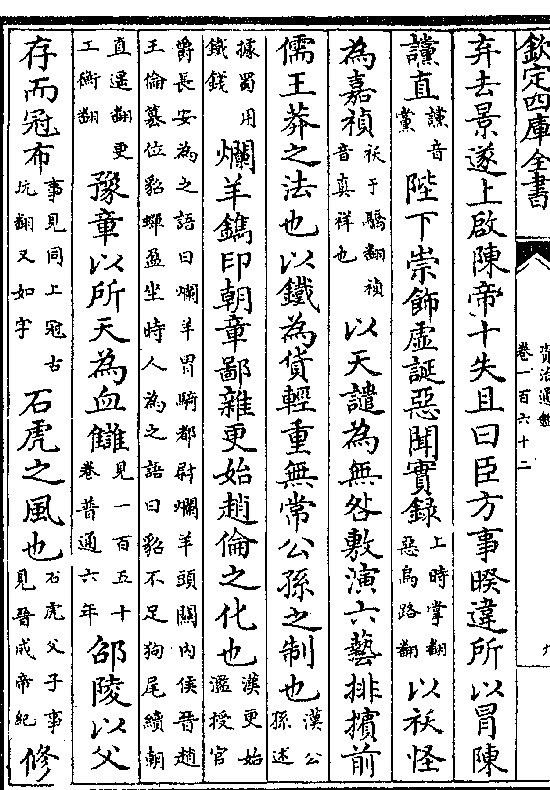 欽定四庫全書
資治通鑑
卷一百六十二
九
弃去景遂上啟陳帝十失且曰臣方事暌違所以冒陳
讜直讜音黨陛下崇飾虛誕惡聞實錄上時掌翻惡烏路翻以袄怪
為嘉禎袄于驕翻禎音真祥也以天譴為無咎敷演六藝排擯前
儒王莽之法也以鐵為貨輕重無常公孫之制也漢公孫述
據蜀用鐵錢爛羊鐫印朝章鄙雜更始趙倫之化也漢更始濫授官
爵長安為之語曰爛羊胃騎都尉爛羊頭關內侯晉趙王倫簒位貂蟬盈坐時人為之語曰貂不足狗尾續朝
直遥翻更工衡翻豫章以所天為血讎見一百五十卷普通六年邵陵以父
存而冠布事見同上冠古玩翻又如字石虎之風也石虎父子事見晉成帝紀修